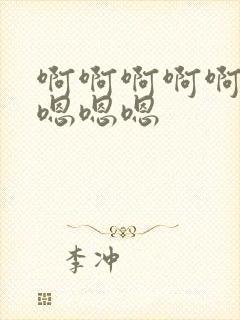 啊啊啊啊啊
嗯嗯嗯
李冲